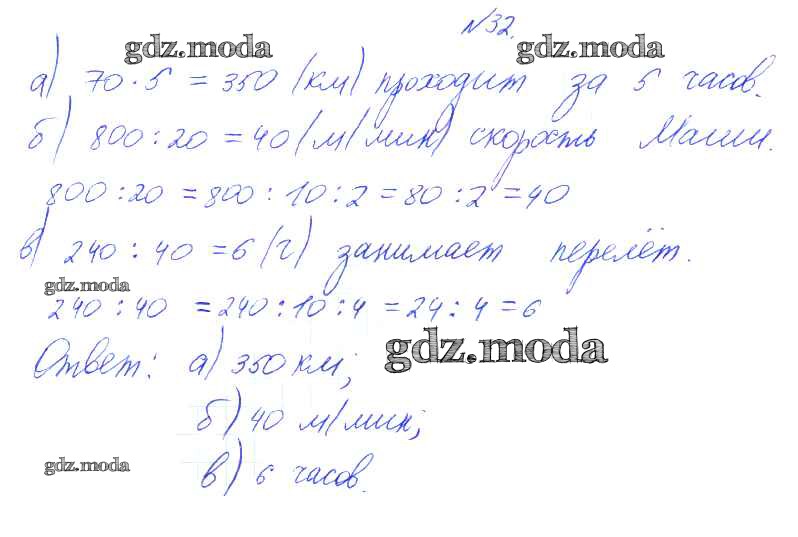 №32.
gdz.moda gdz.moda
а) 70 · 5 = 350 (км) проходит за 5 часов.
б) 800 : 20 = 40 (м/мин) скорость Маши.
800 : 20 = 800 : 10 : 2 = 80 : 2 = 40
в) 240 : 40 = 6 (ч) занимает перелёт.
gdz.moda
240 : 40 = 240 : 10 : 4 = 24 : 4 = 6
gdz.moda
Ответ: а) 350 км;
б) 40 м/мин;
gdz.moda
в) 6 часов.